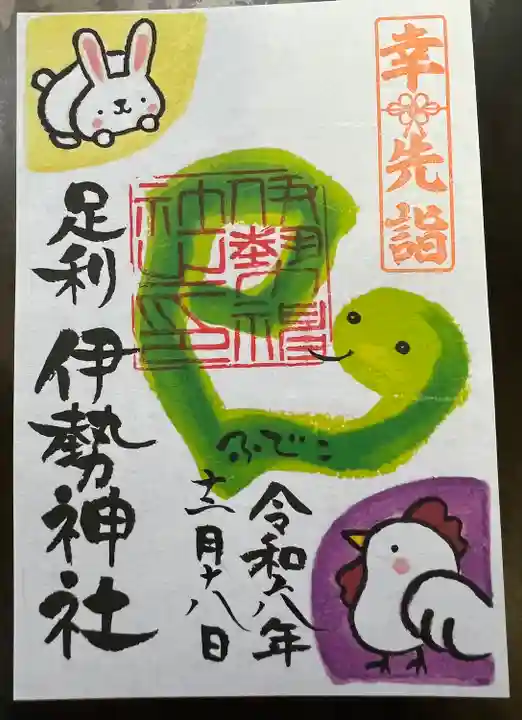 幸先詣
伊勢神
社之印
ふでこ
令和六年
十二月十八日
足利 伊勢神社